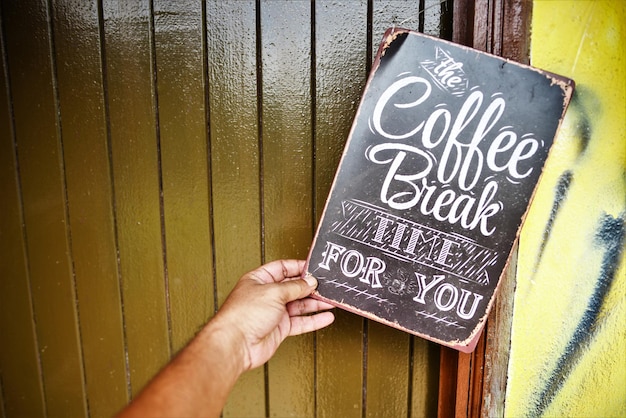 the
Coffee
Break
TIME
FOR YOU